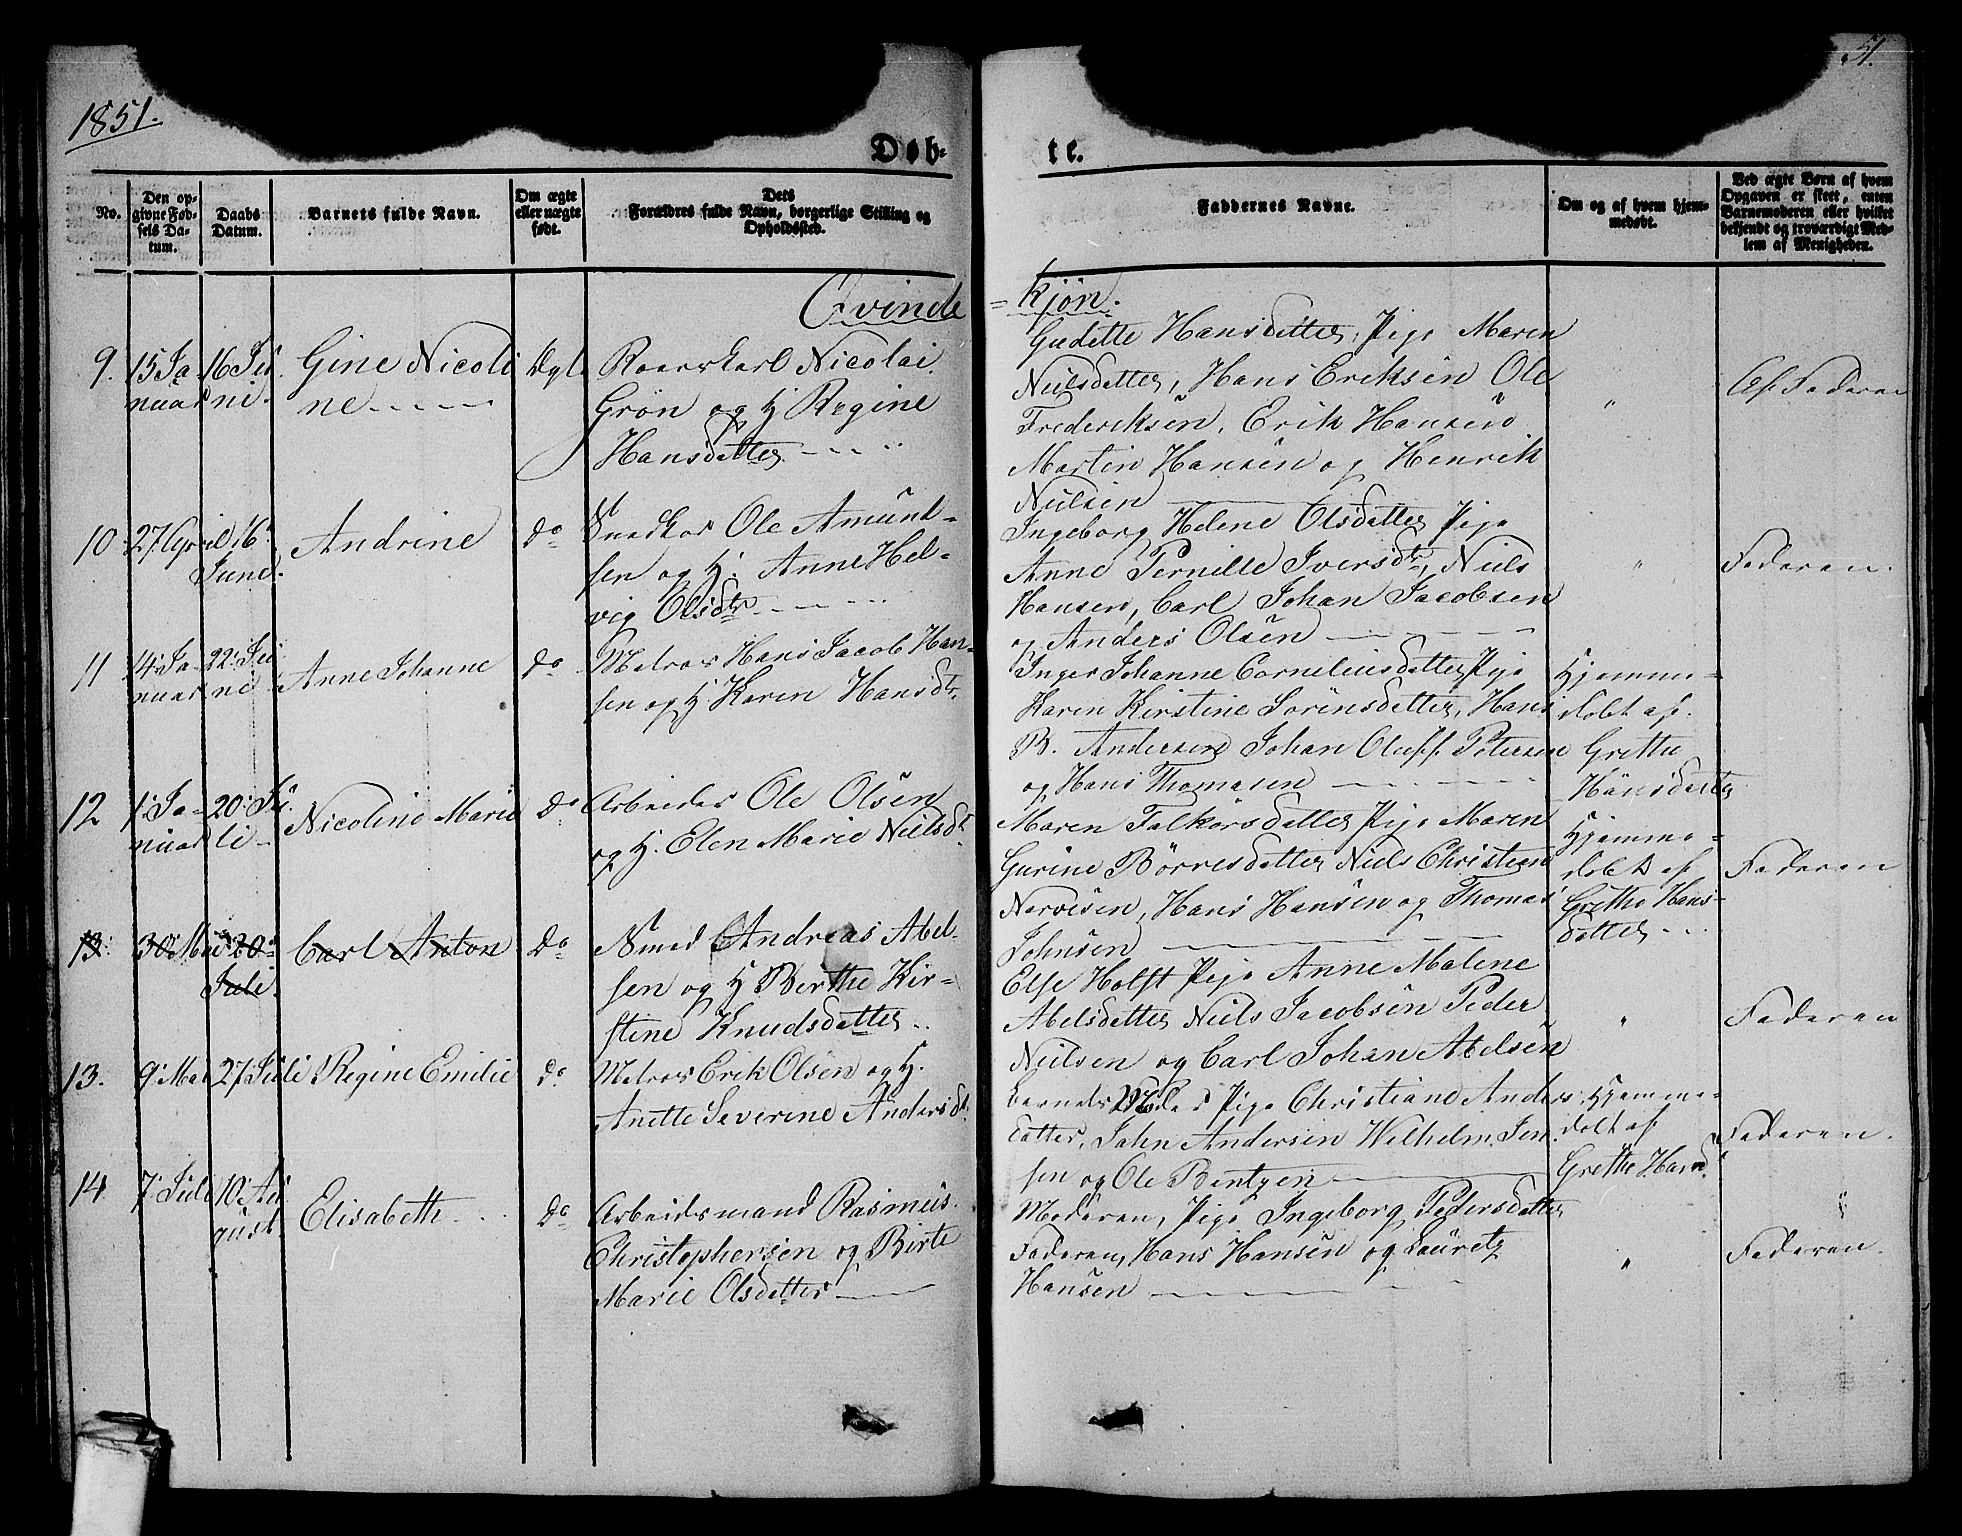 1851.
51.
Døb-
te.
No.
Den op-
givne Fød-
sels Da-
tum.
Daabs
Datum.
Barnets fulde Navn.
Om ægte
eller uægte
født.
Dets
Forældres fulde Navn, borgerlige Stilling og
Opholdssted.
Faddernes Navne.
Om og af hvem hjem-
medøbt.
Ved ægte Børn af hvem
Opgaven er skeet, enten
Barnemoderen eller hvilket
bekjendt og troværdigt Med-
lem af Menigheden.
Qvinde
= kjøn.
9.
15 Ja-
nuar
16 Ju
ni.
Gine Nicoli
ne
Roerskarl Nicolai
Grøn og H Regine
Hansdatter
Gudette Hansdatter, Pige Maren
Nielsdatter, Hans Eriksen Ole
Frederiksen, Erik Hansen
Martin Hansen og Henrik
Nielsen
"
Af Faderen
10
27 April
16
June.
Andrine
do
Snedker Ole Amund-
sen og H. Anne Hel-
vig Olsdtr
Ingeborg Helene Olsdatter Pige
Anne Pernille Iversdtr, Niels
Hansen, Carl Johan Jacobsen
og Anders Olsen
"
Faderen.
11
4 Ja-
nuar
22 Ju
ni
Anne Johanne
do
Matros Hans Jacob Han-
sen og H Karen Hansdtr.
Inger Johanne Corneliusdatter, Pige
Karen Kirstine Sørensdatter, Hans
B. Andersen Johan Oluff Petersen
og Hans Thomasen
Hjemme-
døbt af
Grethe
Hansdatter
12
1 Ja-
nuar
20 Ju
li
Nicoline Marie
do
Arbeider Ole Olsen
og H. Elen Marie Nielsdtr.
Maren Falkorsdatter Pige Maren
Gurine Børresdatter Niels Christian
Narvesen, Hans Hansen og Thomas
Johnsen
Hjemme-
døbt af
Grethe Hans-
datter
Faderen
13.
30 Mai
20
Juli.
Carl Anton
do
Smed Andreas Abel-
sen og H Berthe Kir-
stine Knudsdatter
Else Holst Pige Anne Malene
Abelsdatter Niels Jacobsen Peder
Nielsen og Carl Johan Abelsen
"
Faderen
13.
9 Mai
27 Juli
Regine Emilie
do
Matros Erik Olsen og H.
Anette Severine Andersdtr.
Barnets Moder Pige Christiane Anders
datter, John Andersen Wilhelm Jen-
sen og Ole Bentzen
Hjemme-
døbt af
Grethe Hansd.
Faderen.
14
7 Juli
10 Au
gust.
Elisabeth
do
Arbeidsmand Rasmus
Christophersen og Birte
Marie Olsdatter
Moderen, Pige Ingeborg Pedersdatter
Faderen, Hans Hansen og Lauretz
Hansen
"
Faderen.